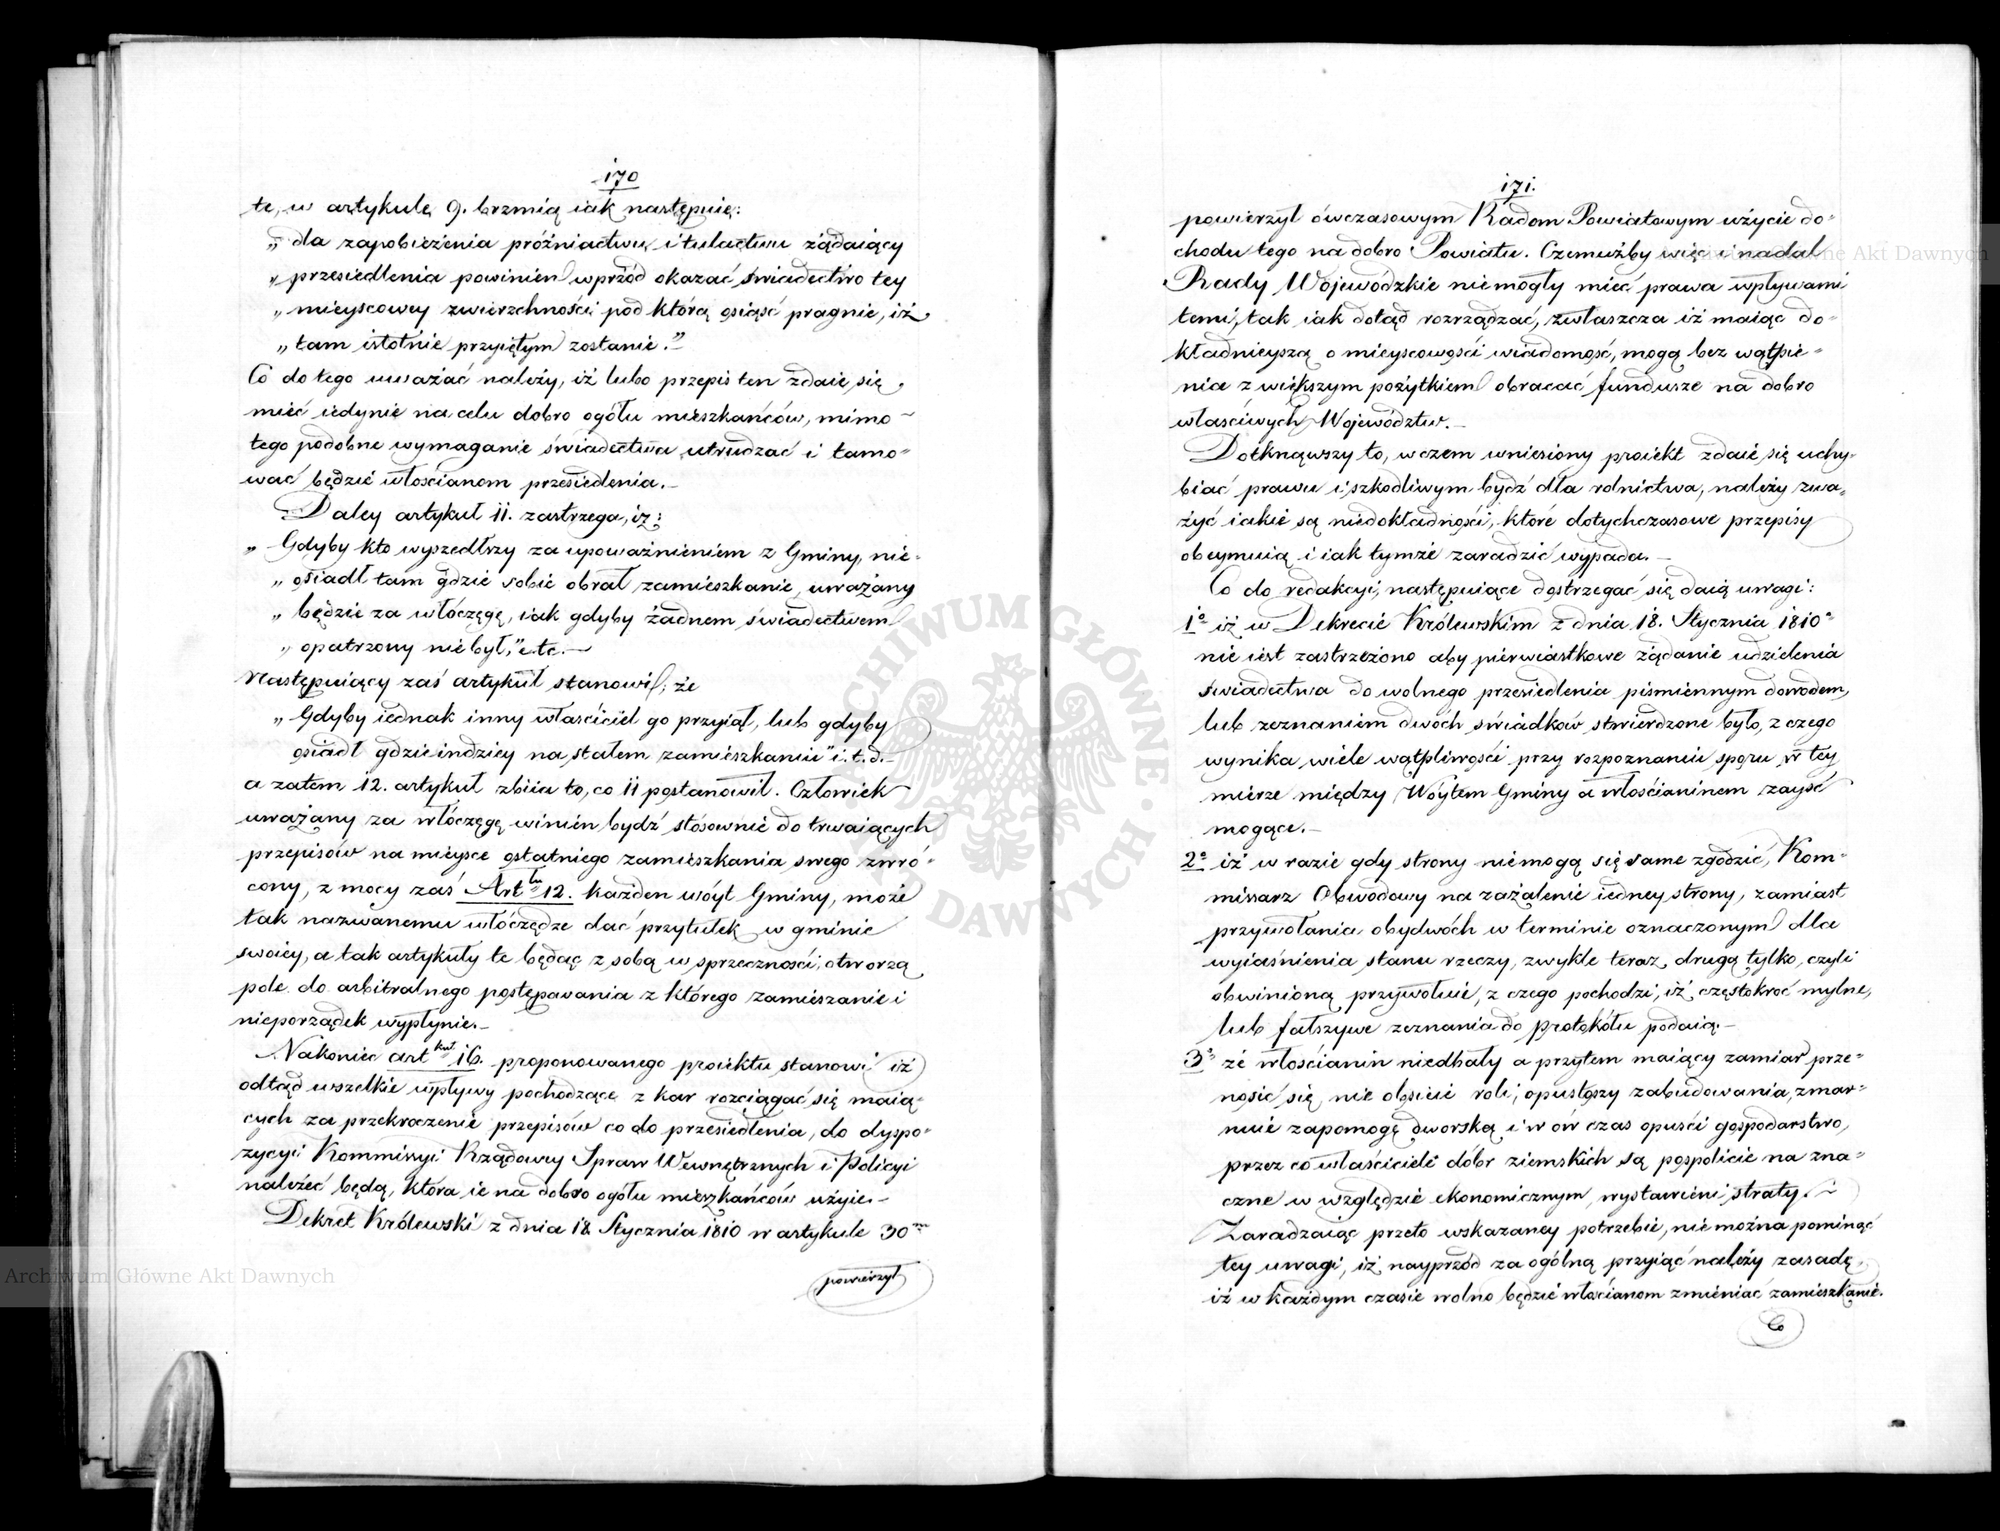 170
te, w artykule 9. brzmią iak następuie:
„ dla zapobieżenia próżniactwu i tułactwu żądaiący
„ przesiedlenia powinien wprzód okazać świadectwo tey
„ mieyscowey zwierzchności pod którą osiąść pragnie, iż
„ tam istotnie przyiętym zostanie."
Co do tego uważać należy, iż lubo przepis ten zdaie się
mieć iedynie na celu dobro ogółu mieszkańców, mimo
tego podobne wymaganie świadectwa utrudzać i tamo=
wać będzie włościanom przesiedlenia.–
Daley artykuł 11. zastrzega, iż:
„ Gdyby kto wyszedłszy za upoważnieniem z Gminy, nie=
„ osiadł tam gdzie sobie obrał zamieszkanie, uważany
„ będzie za włóczęgę, iak gdyby żadnem świadectwem
„ opatrzony nie był," etc.–
Następuiący zaś artykuł stanowi, że
„ Gdyby iednak inny właściciel go przyiął, lub gdyby
osiadł gdzieindziey na stałem zamieszkaniu" i.t.d.–
a zatem 12. artykuł zbiia to, co 11 postanowił. Człowiek
uważany za włóczęgę winien bydź stósownie do trwaiących
przepisów na mieysce ostatniego zamieszkania swego zwró=
cony, z mocy zaś Art:łu 12. każden wóyt Gminy, może
tak nazwanemu włóczędze dać przytułek w gminie
swoiey, a tak artykuły te będąc z sobą w sprzeczności, otworzą
pole do arbitralnego postępowania z którego zamieszanie i
nieporządek wypłynie.–
Nakoniec art:kuł 16. proponowanego proiektu stanowi iż
odtąd wszelkie wpływy pochodzące z kar rozciągać się maią=
cych za przekroczenie przepisów co do przesiedlenia, do dyspo=
zycyi Kommissyi Rządowey Spraw Wewnętrznych i Policyi
należeć będą, która ie na dobro ogółu mieszkańców użyie.–
Dekret Królewski z dnia 18 Stycznia 1810 w artykule 30m
powierzył
171.
powierzył ówczasowym Radom Powiatowym użycie do=
chodu tego na dobro Powiatu. Czemużby więc i nadal
Rady Wojewódzkie nie mogły mieć prawa wpływami
temi, tak iak dotąd rozrządzać, zwłaszcza iż maiąc do=
kładnieyszą o mieyscowości wiadomość, mogą bez wątpie=
nia z większym pożytkiem obracać fundusze na dobro
właściwych Województw.–
Dotknąwszy to, w czem wniesiony proiekt zdaie się uchy=
biać prawu i szkodliwym bydź dla rolnictwa, należy zwa=
żyć iakie są niedokładności, które dotychczasowe przepisy
obeymuią i iak tymże zaradzić wypada.–
Co do redakcyi, następuiące dostrzegać się daią uwagi:
1o iż w Dekrecie Królewskim z dnia 18. Stycznia 1810o
nie iest zastrzeżono aby pierwiastkowe żądanie udzielenia
świadectwa do wolnego przesiedlenia piśmiennym dowodem,
lub zeznaniem dwóch świadków stwierdzone było, z czego
wynika wiele wątpliwości przy rozpoznaniu sporu w tey
mierze między Wóytem Gminy a włościaninem zayść
mogące.–
2o iż w razie gdy strony nie mogą się same zgodzić, Kom=
missarz Obwodowy na zażalenie iedney strony, zamiast
przywołania obydwóch w terminie oznaczonym dla
wyiaśnienia stanu rzeczy, zwykle teraz drugą tylko, czyli
obwinioną przywołuie, z czego pochodzi, iż częstokroć mylne,
lub fałszywe zeznania do protokółu podaią.–
3o że włościanin niedbały a przytem maiący zamiar prze=
nosić się, nie obsieie roli, opustoszy zabudowania, zmar=
nuie zapomogę dworską i w ów czas opuści gospodarstwo,
przez co właściciele dóbr ziemskich są pospolicie na zna=
czne w względzie ekonomicznym, wystawieni, straty.–
Zaradzaiąc przeto wskazaney potrzebie, nie można pominąć
tey uwagi, iż nayprzód za ogólną przyiąć należy zasadę,
iż w każdym czasie wolno będzie włościanom zmieniać zamieszkanie.
Co
Archiwum Główne Akt Dawnych
Archiwum Główne Akt Dawnych
ARCHIWUM GŁÓWNE AKT DAWNYCH